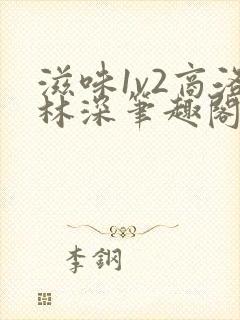 滋味1v2高洛
林深笔趣阁
李鋼